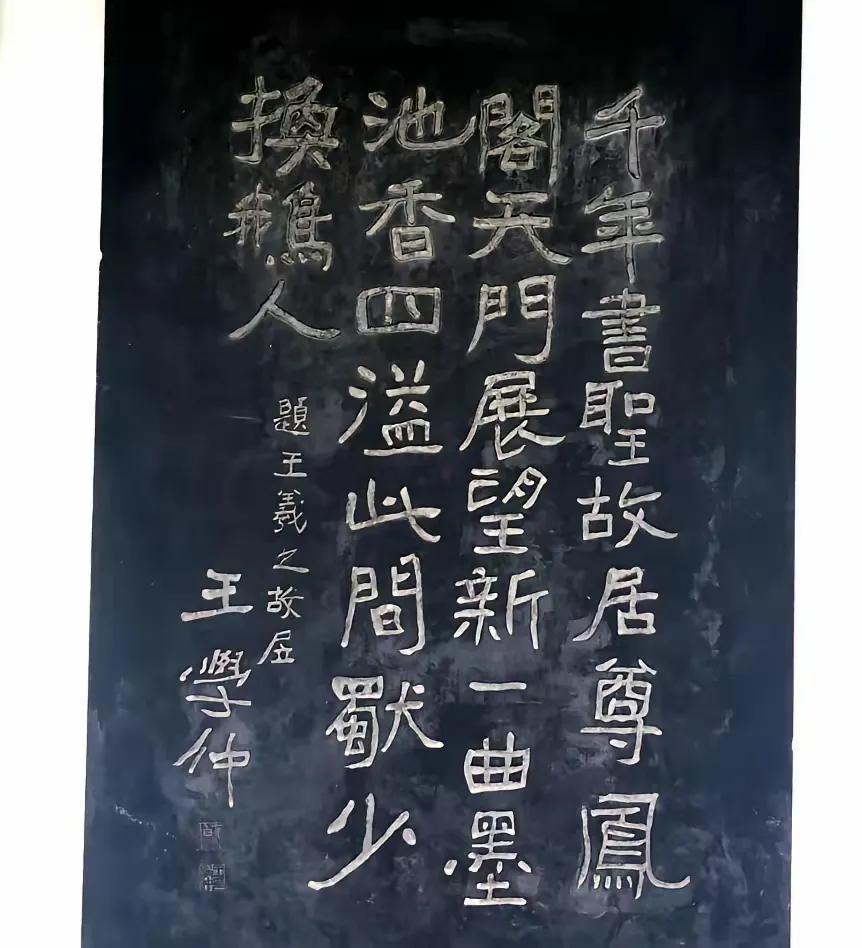 千年書聖故居尊鳳
閣天門展望新一曲墨
池香四溢此間獨少
換鵝人
題王羲之故居
王學仲